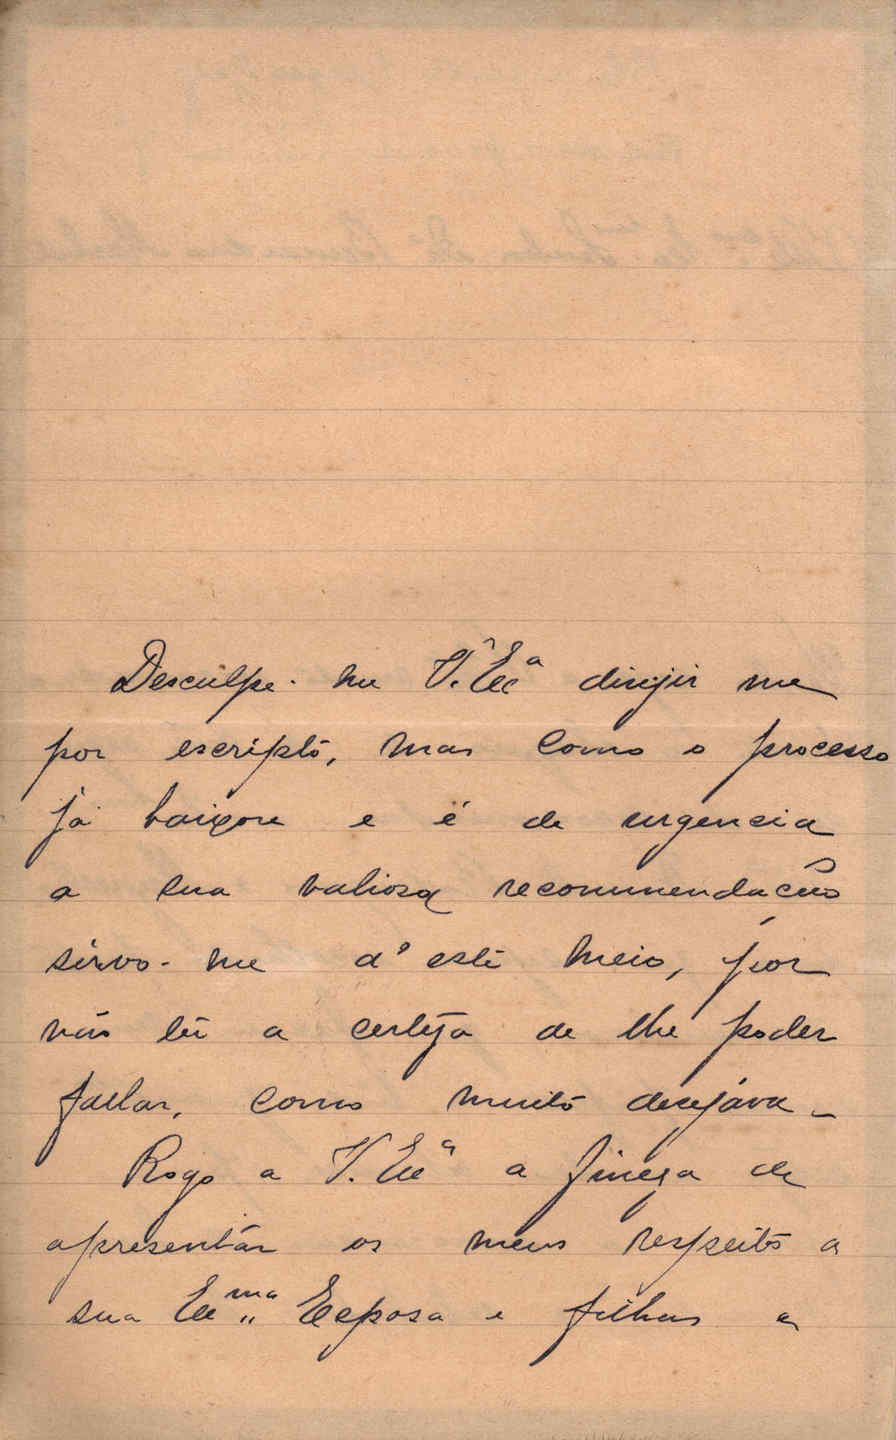 Desculpe-me V. Excª dirijir me
por escripto, mas como o processo
já baixou e é de urgencia
a sua valiosa recommendação
sirvo-me d'este meio, por
não ter a certeza de lhe poder
fallar, como muito desejáva_
Rogo a V. Excª a fineza de
apresentár os meus respeitos a
sua Excma Esposa e filhas a